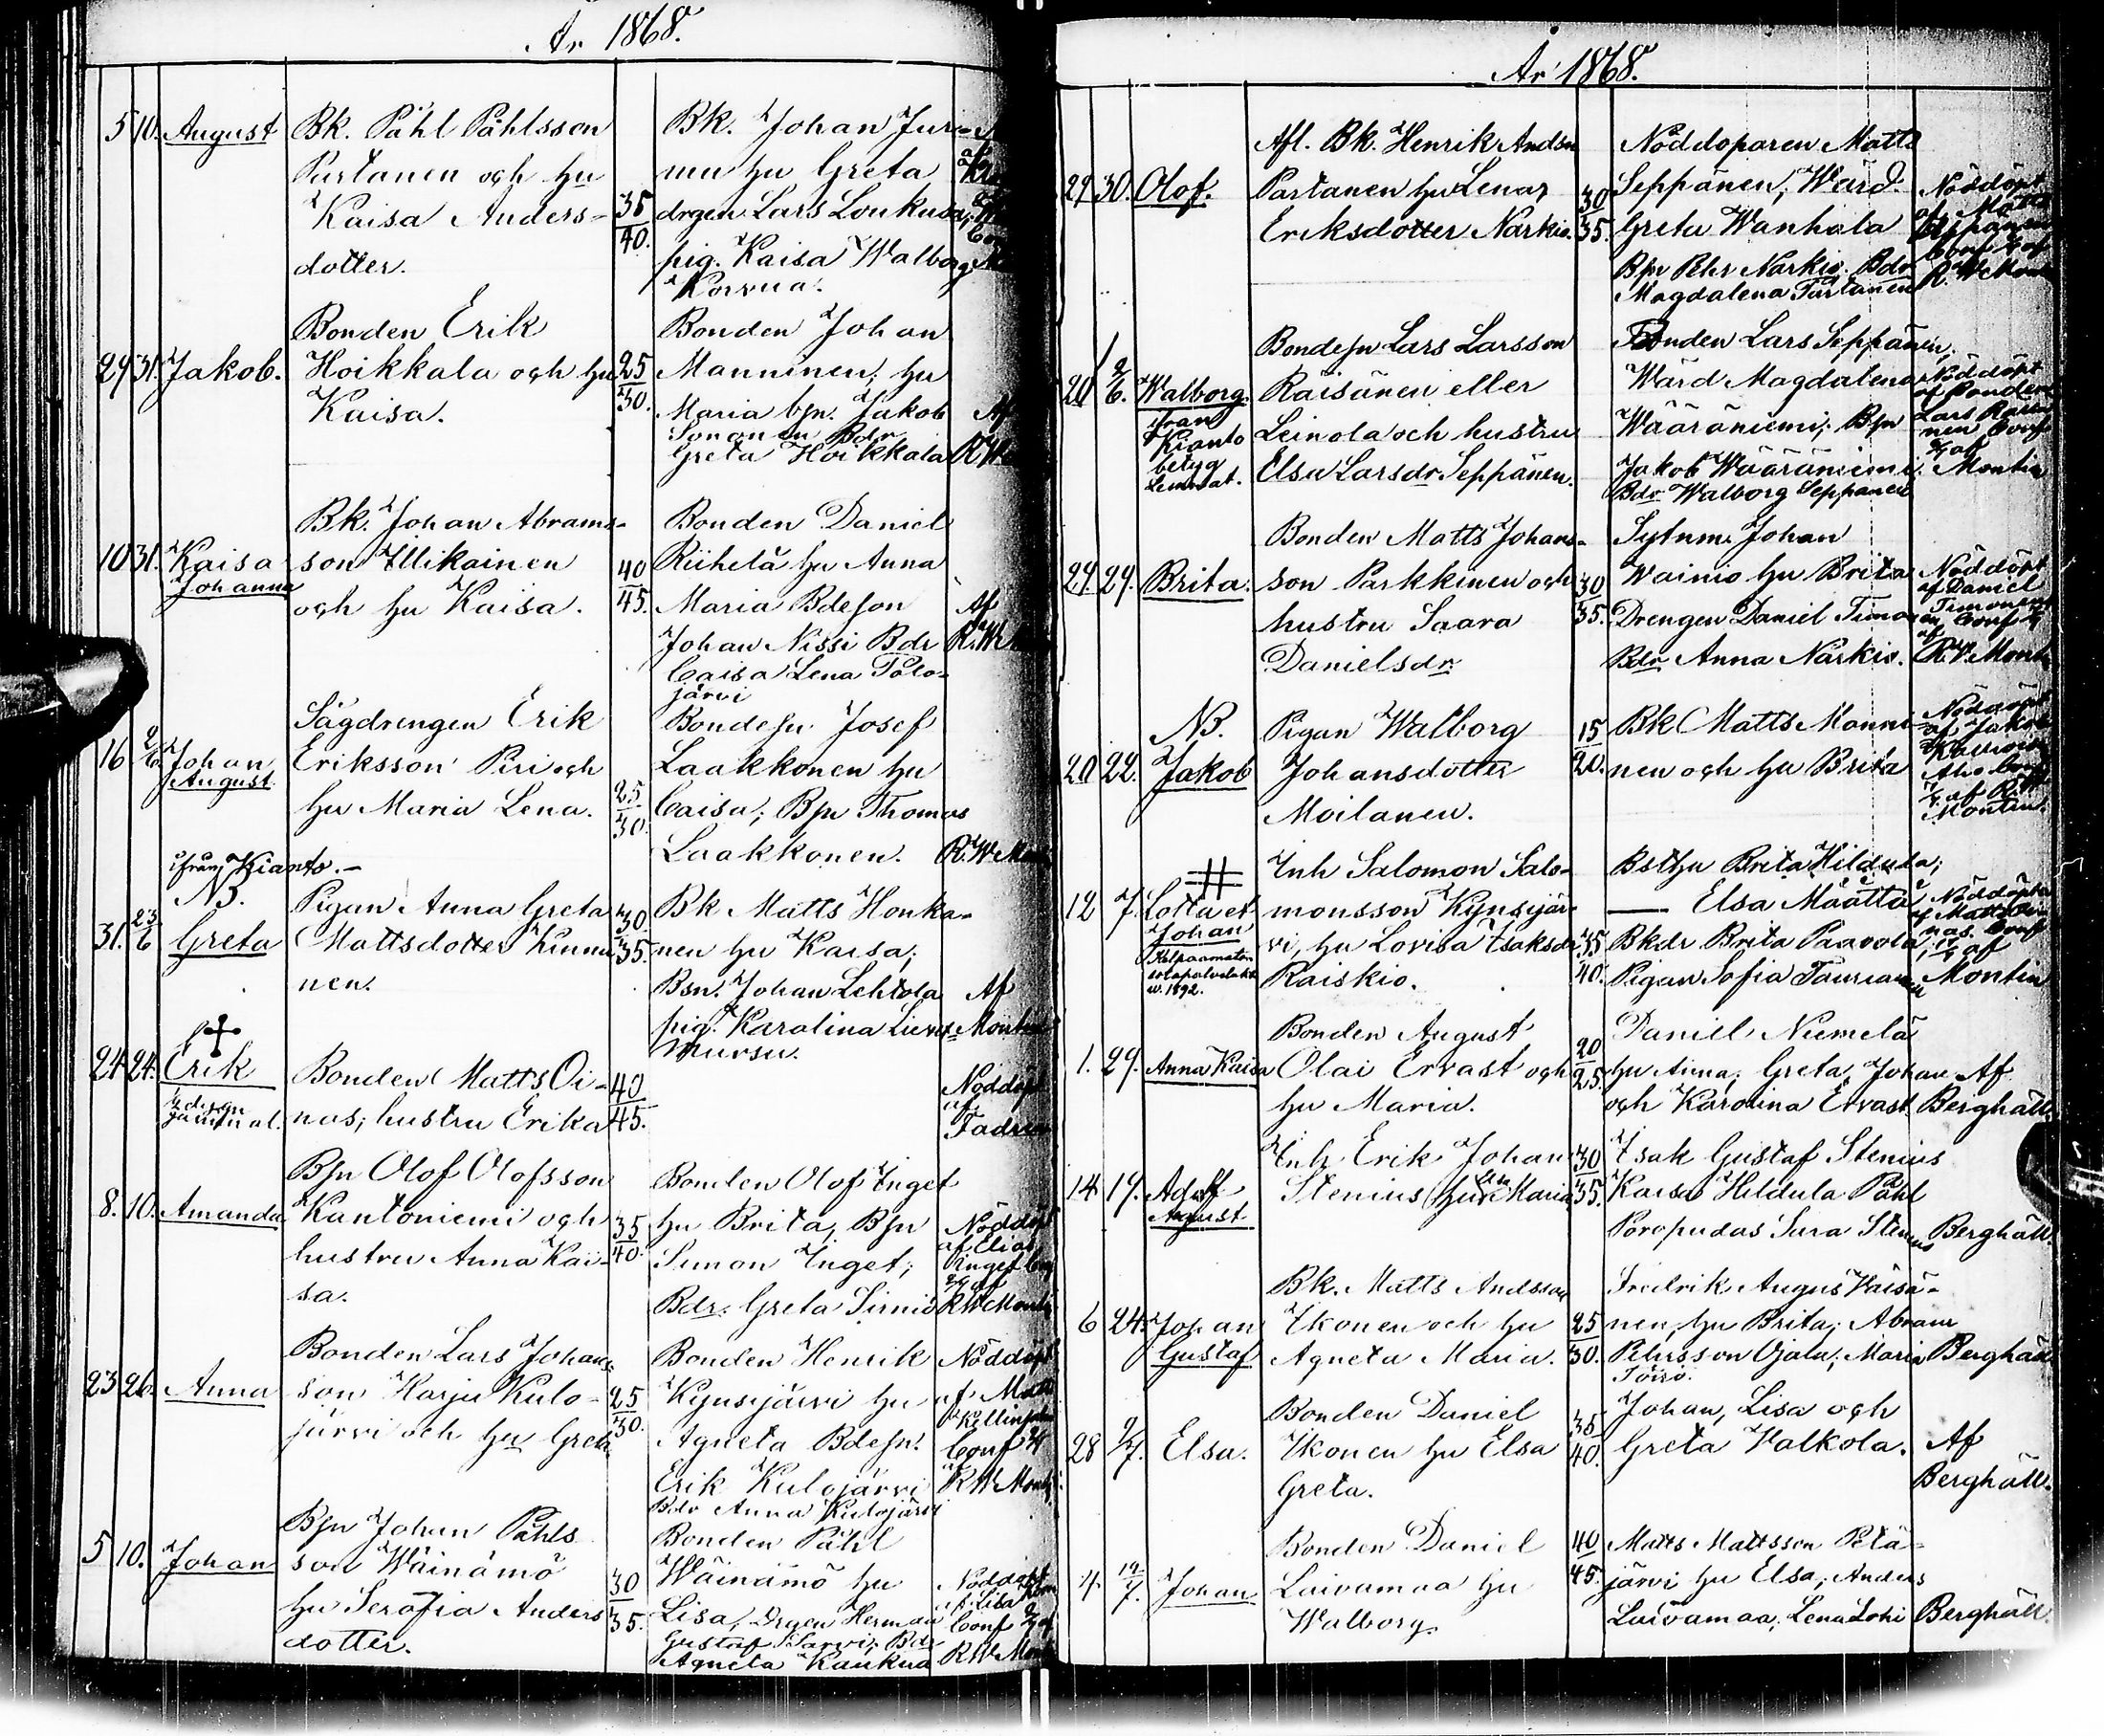 År 1868.
5 10. August Bk. Påhl Påhlsson Bk. Johan Juri-
Partanen och hu mu hu Greta
Kaisa Anders- 35 drgen Lars Loukusa,
dotter. 40. pig. Kaisa Walborg
Korvua.
Bonden Erik Bonden Johan
29 31. Jakob. Hoikkala och hu 25 Manninen, hu
Kaisa. 30. Maria bjn. Jakob Af
Bdr
Greta Hoikkala
Bk. Johan Abrams- Bonden Daniel
10 31. Kaisa son Illikainen 40 Riihelä hu Anna
Johanna och hu Kaisa. 45. Maria Bdeson Af
Johan Nissi Bdr
Caisa Lena Polo-
järvi
Sågdrengen Erik Bondesn Josef
16 2/6 Johan Eriksson Piri och Laakkonen hu
August hu Maria Lena. 25 Caisa, Bsn Thomas
30. Laakkonen. R.W.
ifrån Kianto.-
NB. Pigan Anna Greta 30 Bk Matts Honka-
31. 23/6 Greta Mattsdotter Kinnu 35. nen hu Kaisa,
nen. Bsn. Johan Lehtola Af
pig. Karolina
Mursu.
24 24. Erik Bonden Matts Oi- 40 Nöddöpt
nas, hustru Erika 45. af
Fadren
Bsn Olof Olofsson Bonden Olof Inget
8. 10. Amanda Kantoniemi och 35 hu Brita, Bsn Nöddöpt
hustru Anna Kai- 40. Simon Inget; af Elias
sa. Bdr. Greta Sirniö RWMontin
Bonden Lars Johans- Bonden Henrik Nöddöpt
23 26. Anna son Karju Kulo- 25 Kynsijärvi hu af Matts
järvi och hu Greta 30. Agneta Bdesn. Conf
Erik Kulojärvi af RWMontin
Bdr Anna Kulojärvi
Bsn Johan Påhls Bonden Påhl
5 10. Johan son Wäinämö 30 Wäinämö hu Nöddöpt
hu Serafia Anders 35. Lisa, Drgen Herman af Lisa
dotter. Gustaf Särvi; Bdr Conf
Agneta Kaukua RWMontin
År 1868.
Afl. Bk. Henrik Andsn Nöddoparen Matts
29 30. Olof. Partanen hu Lena 30 Seppänen, Wärd. Nöddöpt
Eriksdotter Närkiö. 35. Greta Wanhala af Matts Seppänen
Bsn Pehr Närkiö. Bdr
Magdalena Partanen R.W.Montin
Bondesn Lars Larsson Bonden Lars Seppänen,
20 2/6. Walborg. Räisänen eller Wärd Magdalena Nöddöpt af Bonden
ifrån Kianto Leinola och hustru Wääräniemi; Bsn Lars
betyg lemnat. Elsa Larsdr Seppänen. Jakob Wääräniemi Montin
Bdr Walborg Seppänen
Bonden Matts Johans- Sytnm. Johan
29. 29. Brita. son Parkkinen och 30 Wainio hu Brita Nöddöpt af Daniel
hustru Saara 35. Drengen Daniel Timo Timonen, Conf
Danielsdr. Bdr Anna Närkiö. R.W.Montin
NB. Pigan Walborg 15 Bk Matts Manni- Nöddöpt af Jakob
20 22. Jakob Johansdotter 20. nen och hu Brita Aho Conf
Moilanen. af R.W Montin.
Inh Salomon Salo- Bsthu Brita Hildula;
12 7. Lotta et monsson Kynsijär- — Elsa Määttä, Nöddöpta
Johan vi, hu Lovisa Isaksdr 35 Bkdr Brita Paavola, af Matts Oinas. Conf
Kelpaamaton sotapalvelukseen v. 1892. Raiskio. 40. Pigan Sofia Tauriainen af Montin
Bonden August 20 Daniel Niemelä
1. 29. Anna Kaisa Olai Ervast och 25. hu Anna; Greta, Johan Af
hu Maria. och Karolina Ervast. Berghäll.
Inh Erik Johan 30 Isak Gustaf Stenius
14 19. Adolf Stenius (hu Maria 35. Kaisa Hildula Påhl
August Poropudas Sara Stenius Berghäll.
Bk. Matts Andsson Fredrik August Väisä-
6 24. Johan Ikonen och hu 25 nen, hu Brita; Abram
Gustaf Agneta Maria. 30. Pehrsson Ojala, Maria Berghäll
Törrö.
Bonden Daniel 35 Johan, Lisa och
28 9/7. Elsa. Ikonen hu Elsa 40. Greta Valkola. Af
Greta. Berghäll.
Bonden Daniel 40 Matts Mattsson Petä-
4. 19/7. Johan Laivamaa hu 45. järvi hu Elsa, Anders
Walborg. Laivamaa, Lena Lohi Berghäll.